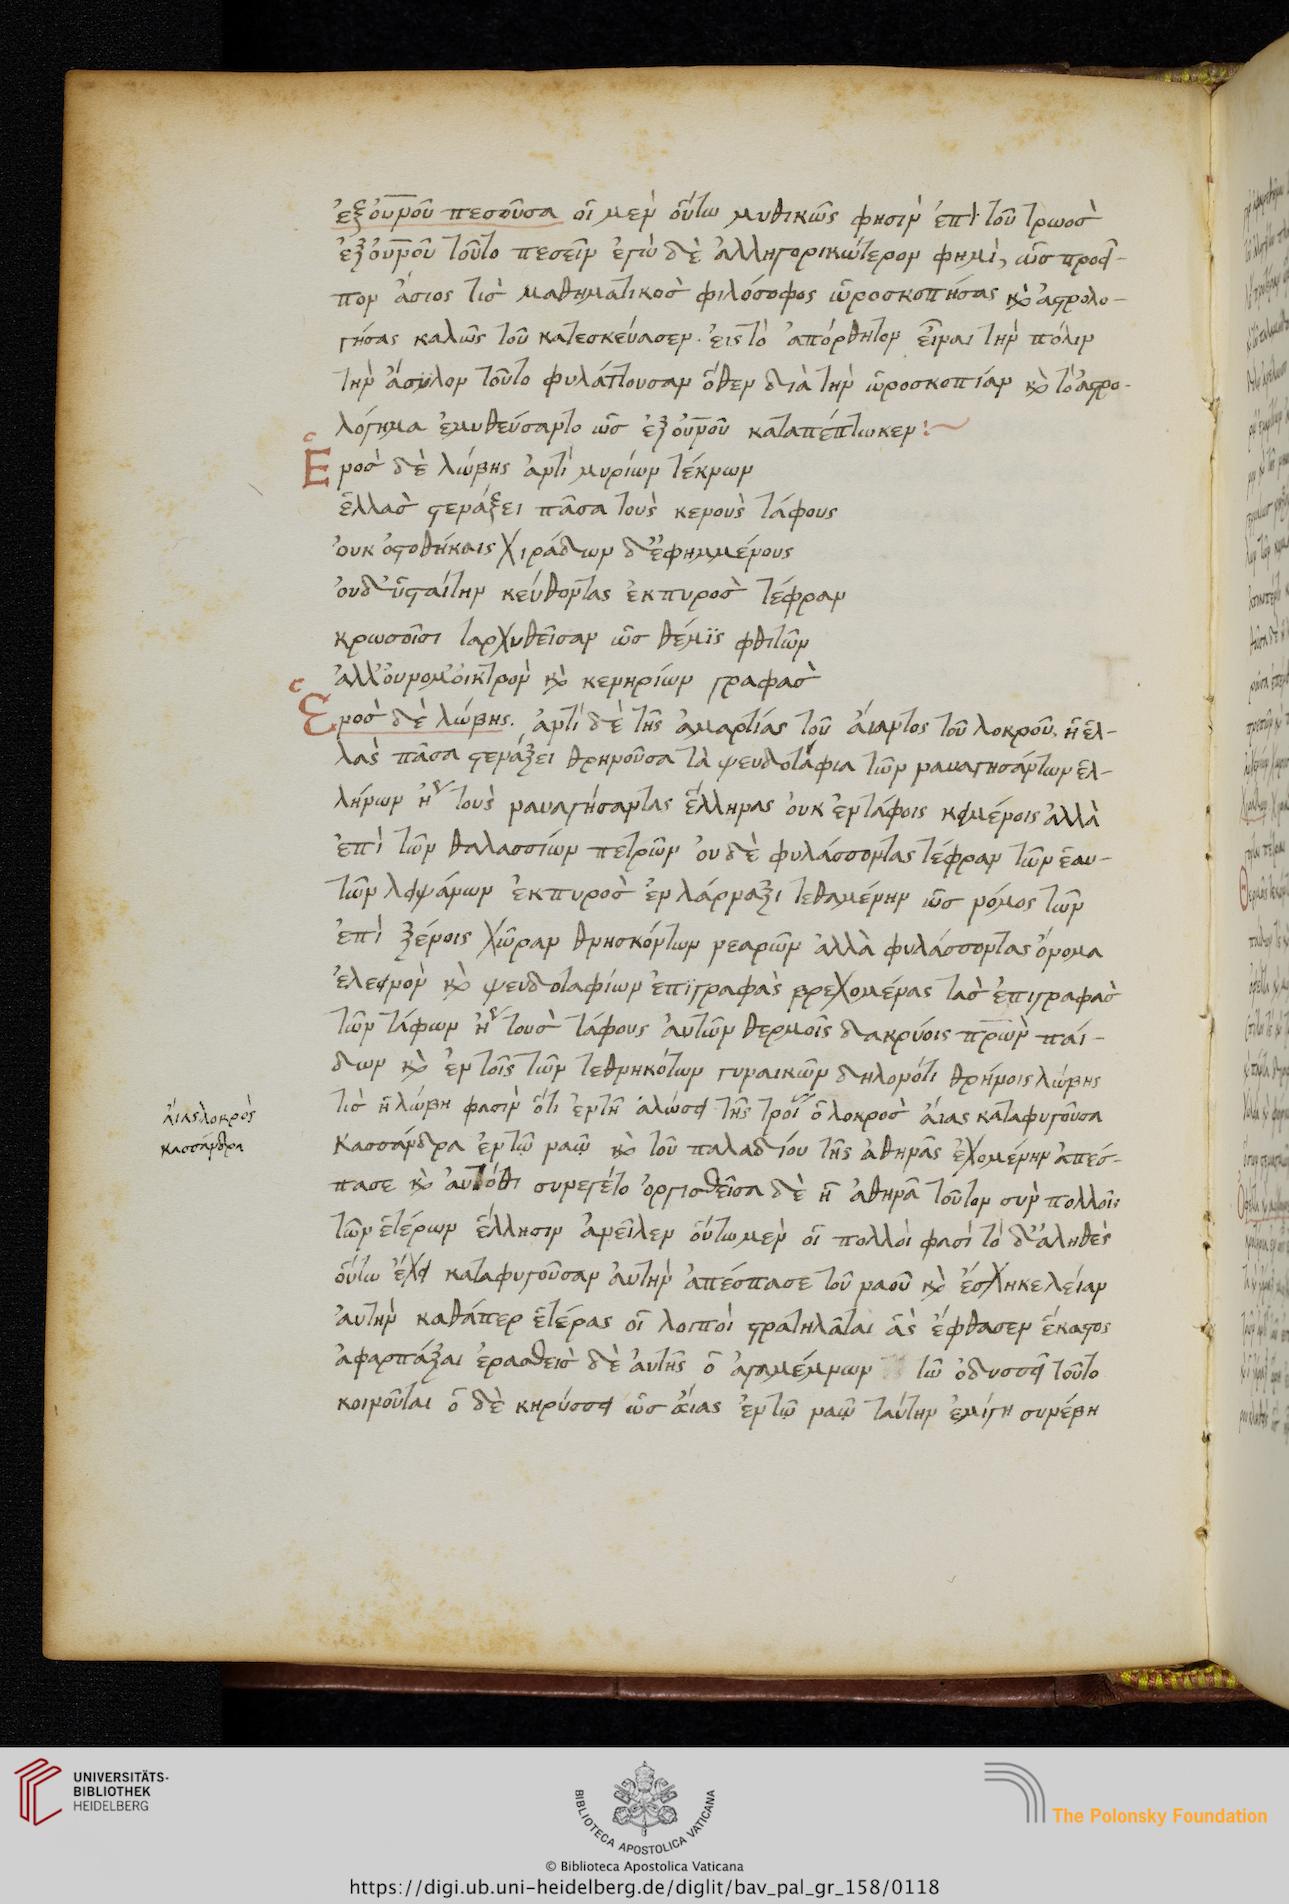 ἐξ οὐρανοῦ πεσοῦσα οἱ μὲν οὕτω μυθικῶς φησὶν ἐπὶ τοῦ τρωὸς
ἐξ οὐρανοῦ τοῦτο πεσεῖν ἐγὼ δὲ ἀλληγορικώτερον φημὶ, ὡς προεῖ-
πον ἄσιος τὶς μαθηματικὸς φιλόσοφος ὡροσκοπήσας καὶ ἀστρολο-
γήσας καλῶς τοῦ κατεσκεύασεν. εἰς τὸ ἀπόρθητον εἶναι τὴν πόλιν
τὴν ἄσυλον τοῦτο φυλάττουσαν ὅθεν διὰ τὴν ὡροσκοπίαν καὶ τὸ ἀστρο-
λόγημα ἐμυθεύσαντο ὡς ἐξ οὐρανοῦ καταπέπτωκεν:~
Ἑνὸς δὲ λώβης ἀντὶ μυρίων τέκνων
ἑλλὰς στενάξει πᾶσα τοὺς κενοὺς τάφους
οὐκ ὀστοθήκαις χιράδων δ' ἐφημμένους
οὐδ' ὑσταίτην κεύθοντας ἐκ πυρὸς τέφραν
κρωσσοῖσι ταρχυθεῖσαν ὡς θέμις φθιτῶν
ἀλλ' οὔνομ' οἰκτρὸν καὶ κενηρίων γραφὰς
Ἑνὸς δὲ λώβης. ἀντὶ δὲ τῆς ἁμαρτίας τοῦ αἴαντος τοῦ λοκροῦ. ἡ ἑλ-
λὰς πᾶσα στενάξει θρηνοῦσα τὰ ψευδοτάφια τῶν ναυαγησάντων ἑλ-
λήνων ἢ τοὺς ναυαγήσαντας ἕλληνας οὐκ ἐν τάφοις κειμένοις ἀλλὰ
ἐπὶ τῶν θαλασσίων πετρῶν οὐ δὲ φυλάσσοντας τέφραν τῶν ἑαυ-
τῶν λειψάνων ἐκ πυρὸς ἐν λάρναξι τεθαμένην ὡς νόμος τῶν
ἐπὶ ξένοις χώραν θνησκόντων νεανῶν ἀλλὰ φυλάσσοντας ὄνομα
ἐλεεινὸν καὶ ψευδοταφίων ἐπιγραφὰς βρεχομένας τὰς ἐπιγραφὰς
τῶν τάφων ἢ τοὺς τάφους αὐτῶν θερμοῖς δακρύοις πατέρων παί-
δων καὶ ἐν τοῖς τῶν τεθνηκότων γυναικῶν δηλονότι θρήνοις λώβης
τὶς ἡ λώβη φασὶν ὅτι ἐν τῆ ἁλώσει τῆς τροίας ὁ λοκρὸς αἴας καταφυγοῦσα
Κασσάνδρα ἐν τῷ ναῷ καὶ τοῦ παλαδίου τῆς ἀθηνᾶς ἐχομένην ἀπέσ-
πασε καὶ αὐτόθι συνεγένετο ὀργισθεῖσα δὲ ἡ ἀθηνᾶ τοῦτον σὺν πολλοῖς
τῶν ἑτέρων ἕλλησιν ἀνεῖλεν οὕτω μὲν οἱ πολλοὶ φασί τὸ δ' ἀληθὲς
οὕτω ἔχει καταφυγοῦσαν αὐτὴν ἀπέσπασε τοῦ ναοῦ καὶ ἔσχηκε λείαν
αὐτὴν καθάπερ ἑτέρας οἱ λοιποὶ στρατηλᾶται ἃς ἔφθασεν ἕκαστος
ἀφαρπάξαι ἐρασθεὶς δὲ αὐτῆς ὁ ἀγαμέμνων τῶ ὀδυσσεῖ τοῦτο
κοινοῦται ὁ δὲ κηρύσσει ὡς αἴας ἐν τῷ ναῷ ταύτην ἐμίγη συνέβη
αἴας λοκρὸς
κασσάνδρα
UNIVERSITÄTS-
BIBLIOTHEK
HEIDELBERG
BIBLIOTECA APOSTOLICA VATICANA
The Polonsky Foundation
© Biblioteca Apostolica Vaticana
https://digi.ub.uni-heidelberg.de/diglit/bav_pal_gr_158/0118